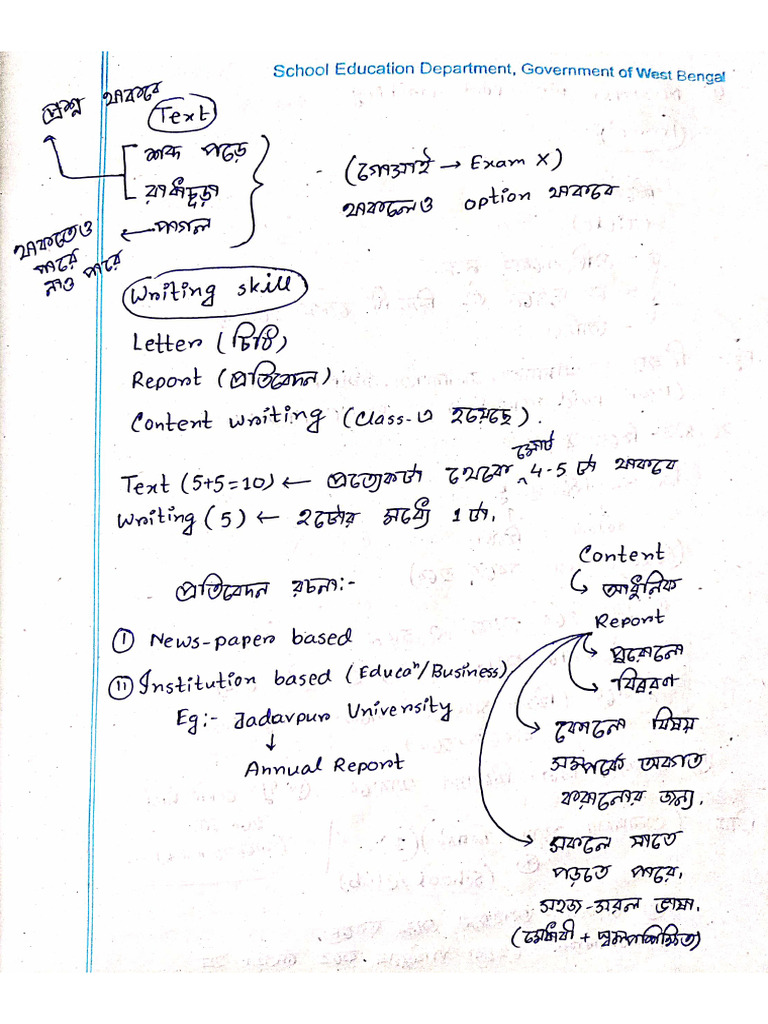 School Education Department, Government of West Bengal
প্রশ্ন থাকবে
Text
শক পড়ে
রাধাচূড়া
পাগল
থাকতেও পারে নাও পারে
(গোসাই → Exam X)
থাকলেও option থাকবে
Writing skill
Letter (চিঠি)
Report (প্রতিবেদন)
Content writing (Class-এ হয়েছে).
Text (5+5=10) ← প্রত্যেকটা থেকে মোট 4-5 টা থাকবে
Writing (5) ← ২টোর মধ্যে 1 টা.
প্রতিবেদন রচনা:-
(i) News-paper based
(ii) Institution based (Educaⁿ/Business)
Eg:- Jadavpur University
↓
Annual Report
Content
↳ আধুনিক
Report
পুরোনো
বিবরণ
কোনো বিষয়
সম্পর্কে অবগত
করানোর জন্য.
সকলে যাতে
পড়তে পারে.
সহজ-সরল ভাষা.
(মেধাবী + স্বল্পশিক্ষিত)